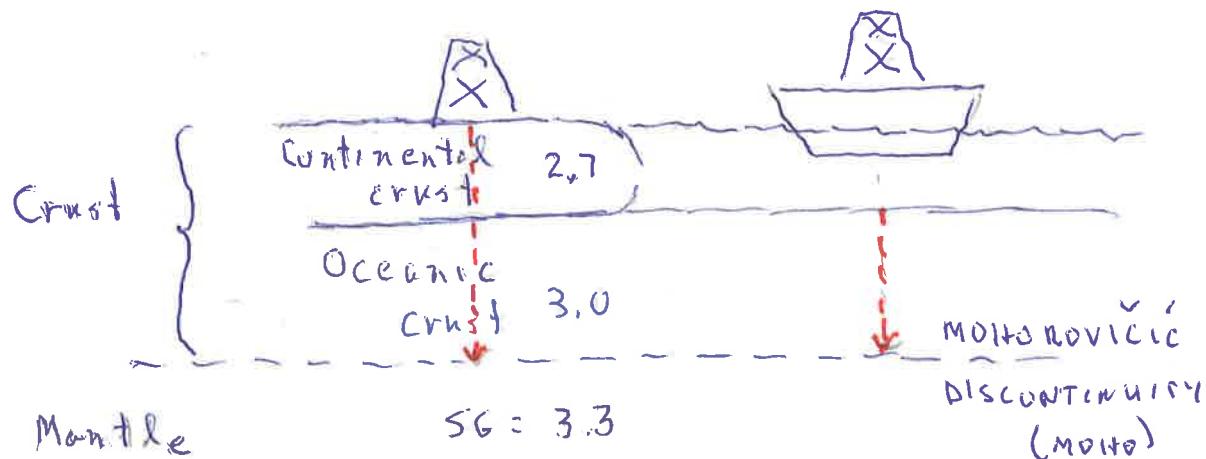 Continental
crust
2.7
Crust
Oceanic
crust
3.0
MOHOROVIČIĆ
DISCONTINUITY
(MOHO)
Mantle
SG = 3.3